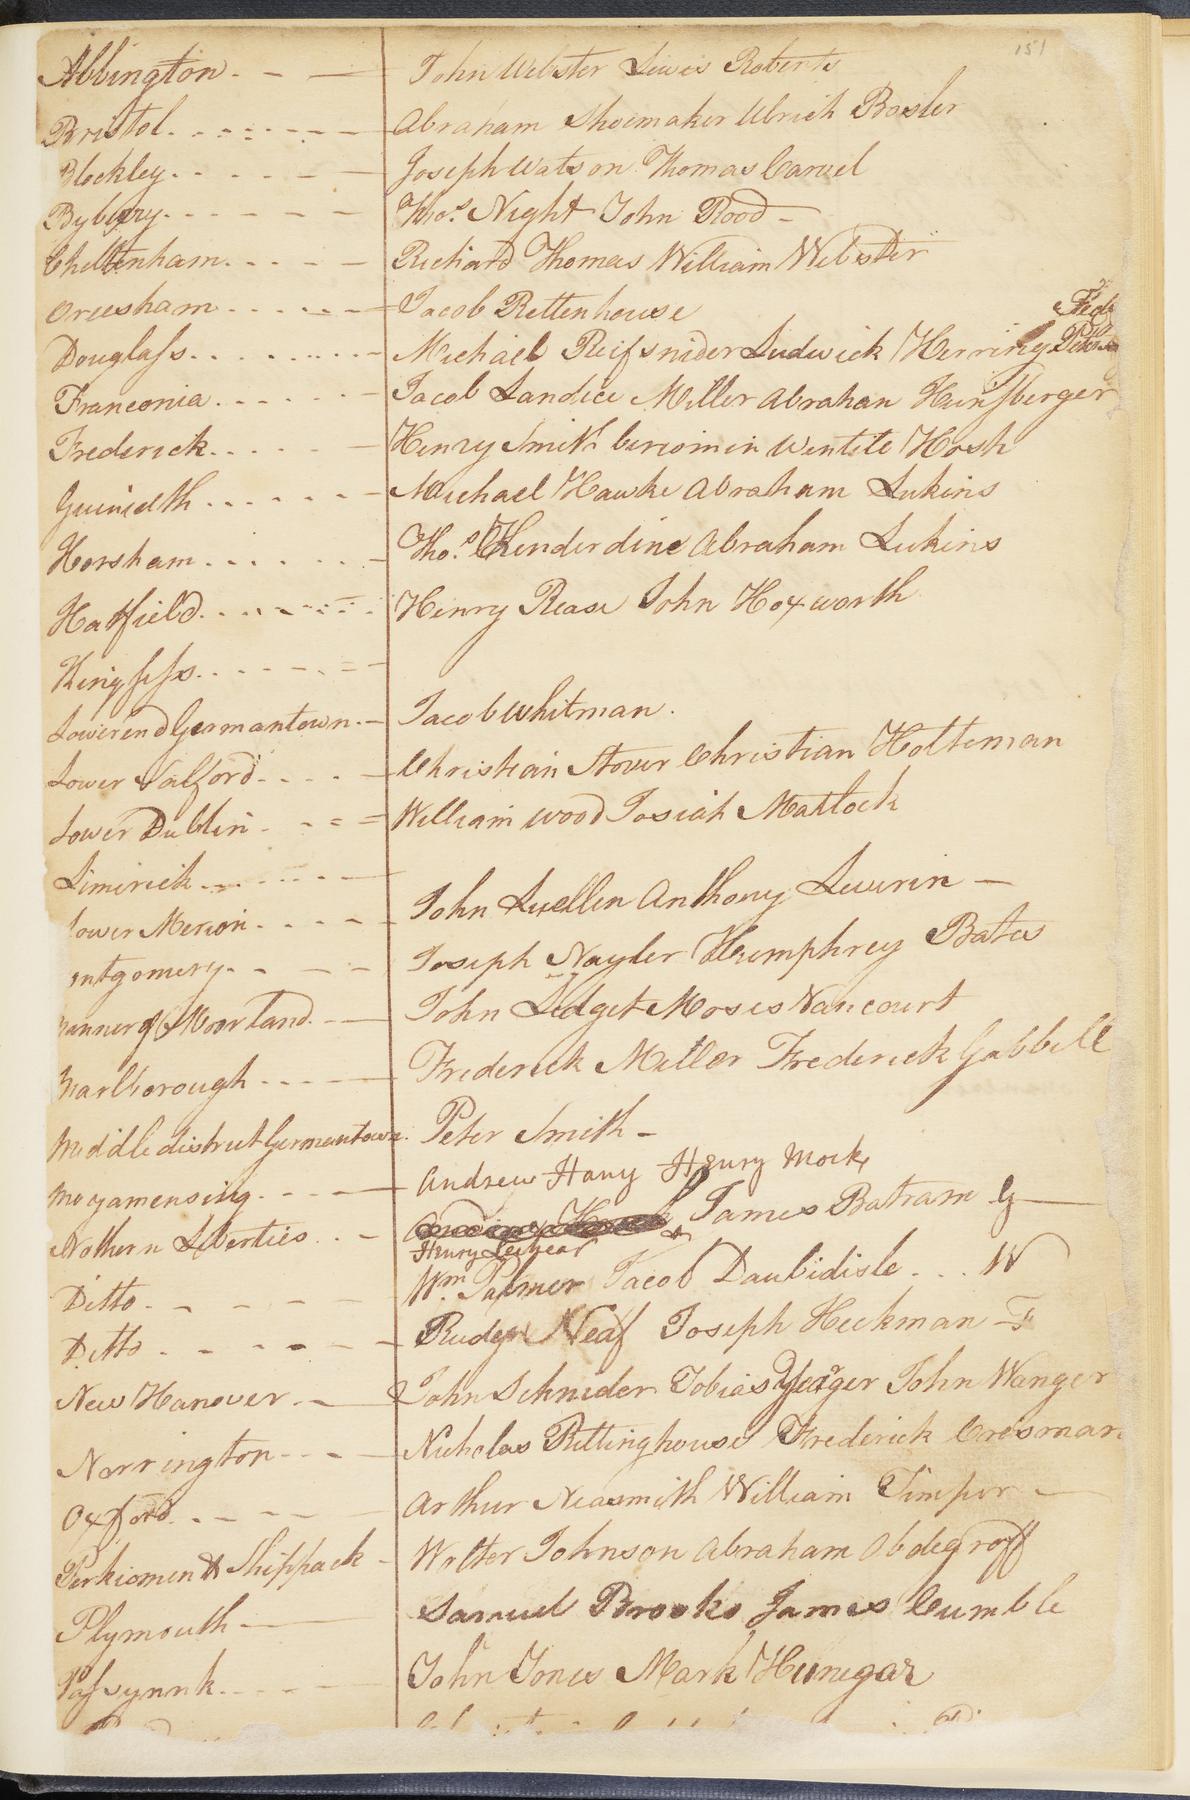 151
Abbington - - — John Webster Lewis Roberts
Bristol - - - - - - - Abraham Shoemaker Ulrich Bosler
Blockley - - - - - - Joseph Watson Thomas Carvel
Byberry - - - - - - Thos. Night John Rood -
Cheltenham - - - - Richard Thomas William Webster
Creesham - - - - - - Jacob Rettenhouse
Douglass - - - - - - - Michael Reifsnider Ludwick Herring
Franconia - - - - - - Jacob Landice Miller Abrahan Hunsberger
Frederick - - - - - Henry Smith Hosh
Guinedth - - - - - - Michael Hawke Abraham Lukins
Horsham - - - - - - Thos. Kenderdine Abraham Lukins
Hatfield - - - - - - Henry Rease John Hoxworth
Kingsess - - - - - -
Lower end Germantown - - Jacob Whitman.
Lower Salford - - - - Christian Stover Christian Holteman
Lower Dublin - - = = William Wood Josiah Matlock
Limirick - - - - - -
Lower Merion - - - - - John Luellen Anthony Lewrin —
ontgomery - - - - Joseph Nayler Humphrey Bates
manner of Moorland - — John Ledget Moses Vancourt
Marlborough - - - - — Frederick Miller Frederick Gabbell
Middle district Germantown Peter Smith -
Moyamensing - - - — Andrew Hany Henry Mock
Nothern Liberties - - - James Batram G —
Henry Lechear
Ditto - - - - - Wm. Palmer Jacob Daubidisle - - - W
Ditto - - - - - - Rudy Neaf Joseph Heckman - F
New Hanover - - John Schnider Tobias Yeager John Wanger
Norrington - - - - Nicholas Rittinghouse Frederick Cresman
Oxford - - - - - Arthur Neasmith William Timper —
Perkiomen & Skippack - Wolter Johnson Abraham Obdegroff
Plymouth - — Samuel Brooks James Cumble
Passyunk - - - - - John Jones Mark Hunegar